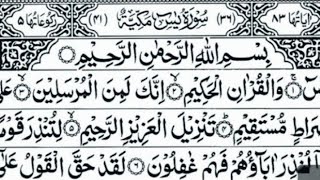 اٰيَاتُهَا ٨٣ (٣٦) سُوْرَةُ يٰسٓ مَكِّيَّةٌ (٤١) رُكُوْعَاتُهَا ٥
بِسْمِ اللّٰهِ الرَّحْمٰنِ الرَّحِيْمِ
وَالْقُرْاٰنِ الْحَكِيْمِ ۙ۝٢ اِنَّكَ لَمِنَ الْمُرْسَلِيْنَ ۙ۝٣
مُّسْتَقِيْمٍ ؕ۝٤ تَنْزِيْلَ الْعَزِيْزِ الرَّحِيْمِ ۙ۝٥ لِتُنْذِرَ
اٰبَآؤُهُمْ فَهُمْ غٰفِلُوْنَ ۝٦ لَقَدْ حَقَّ الْقَوْلُ